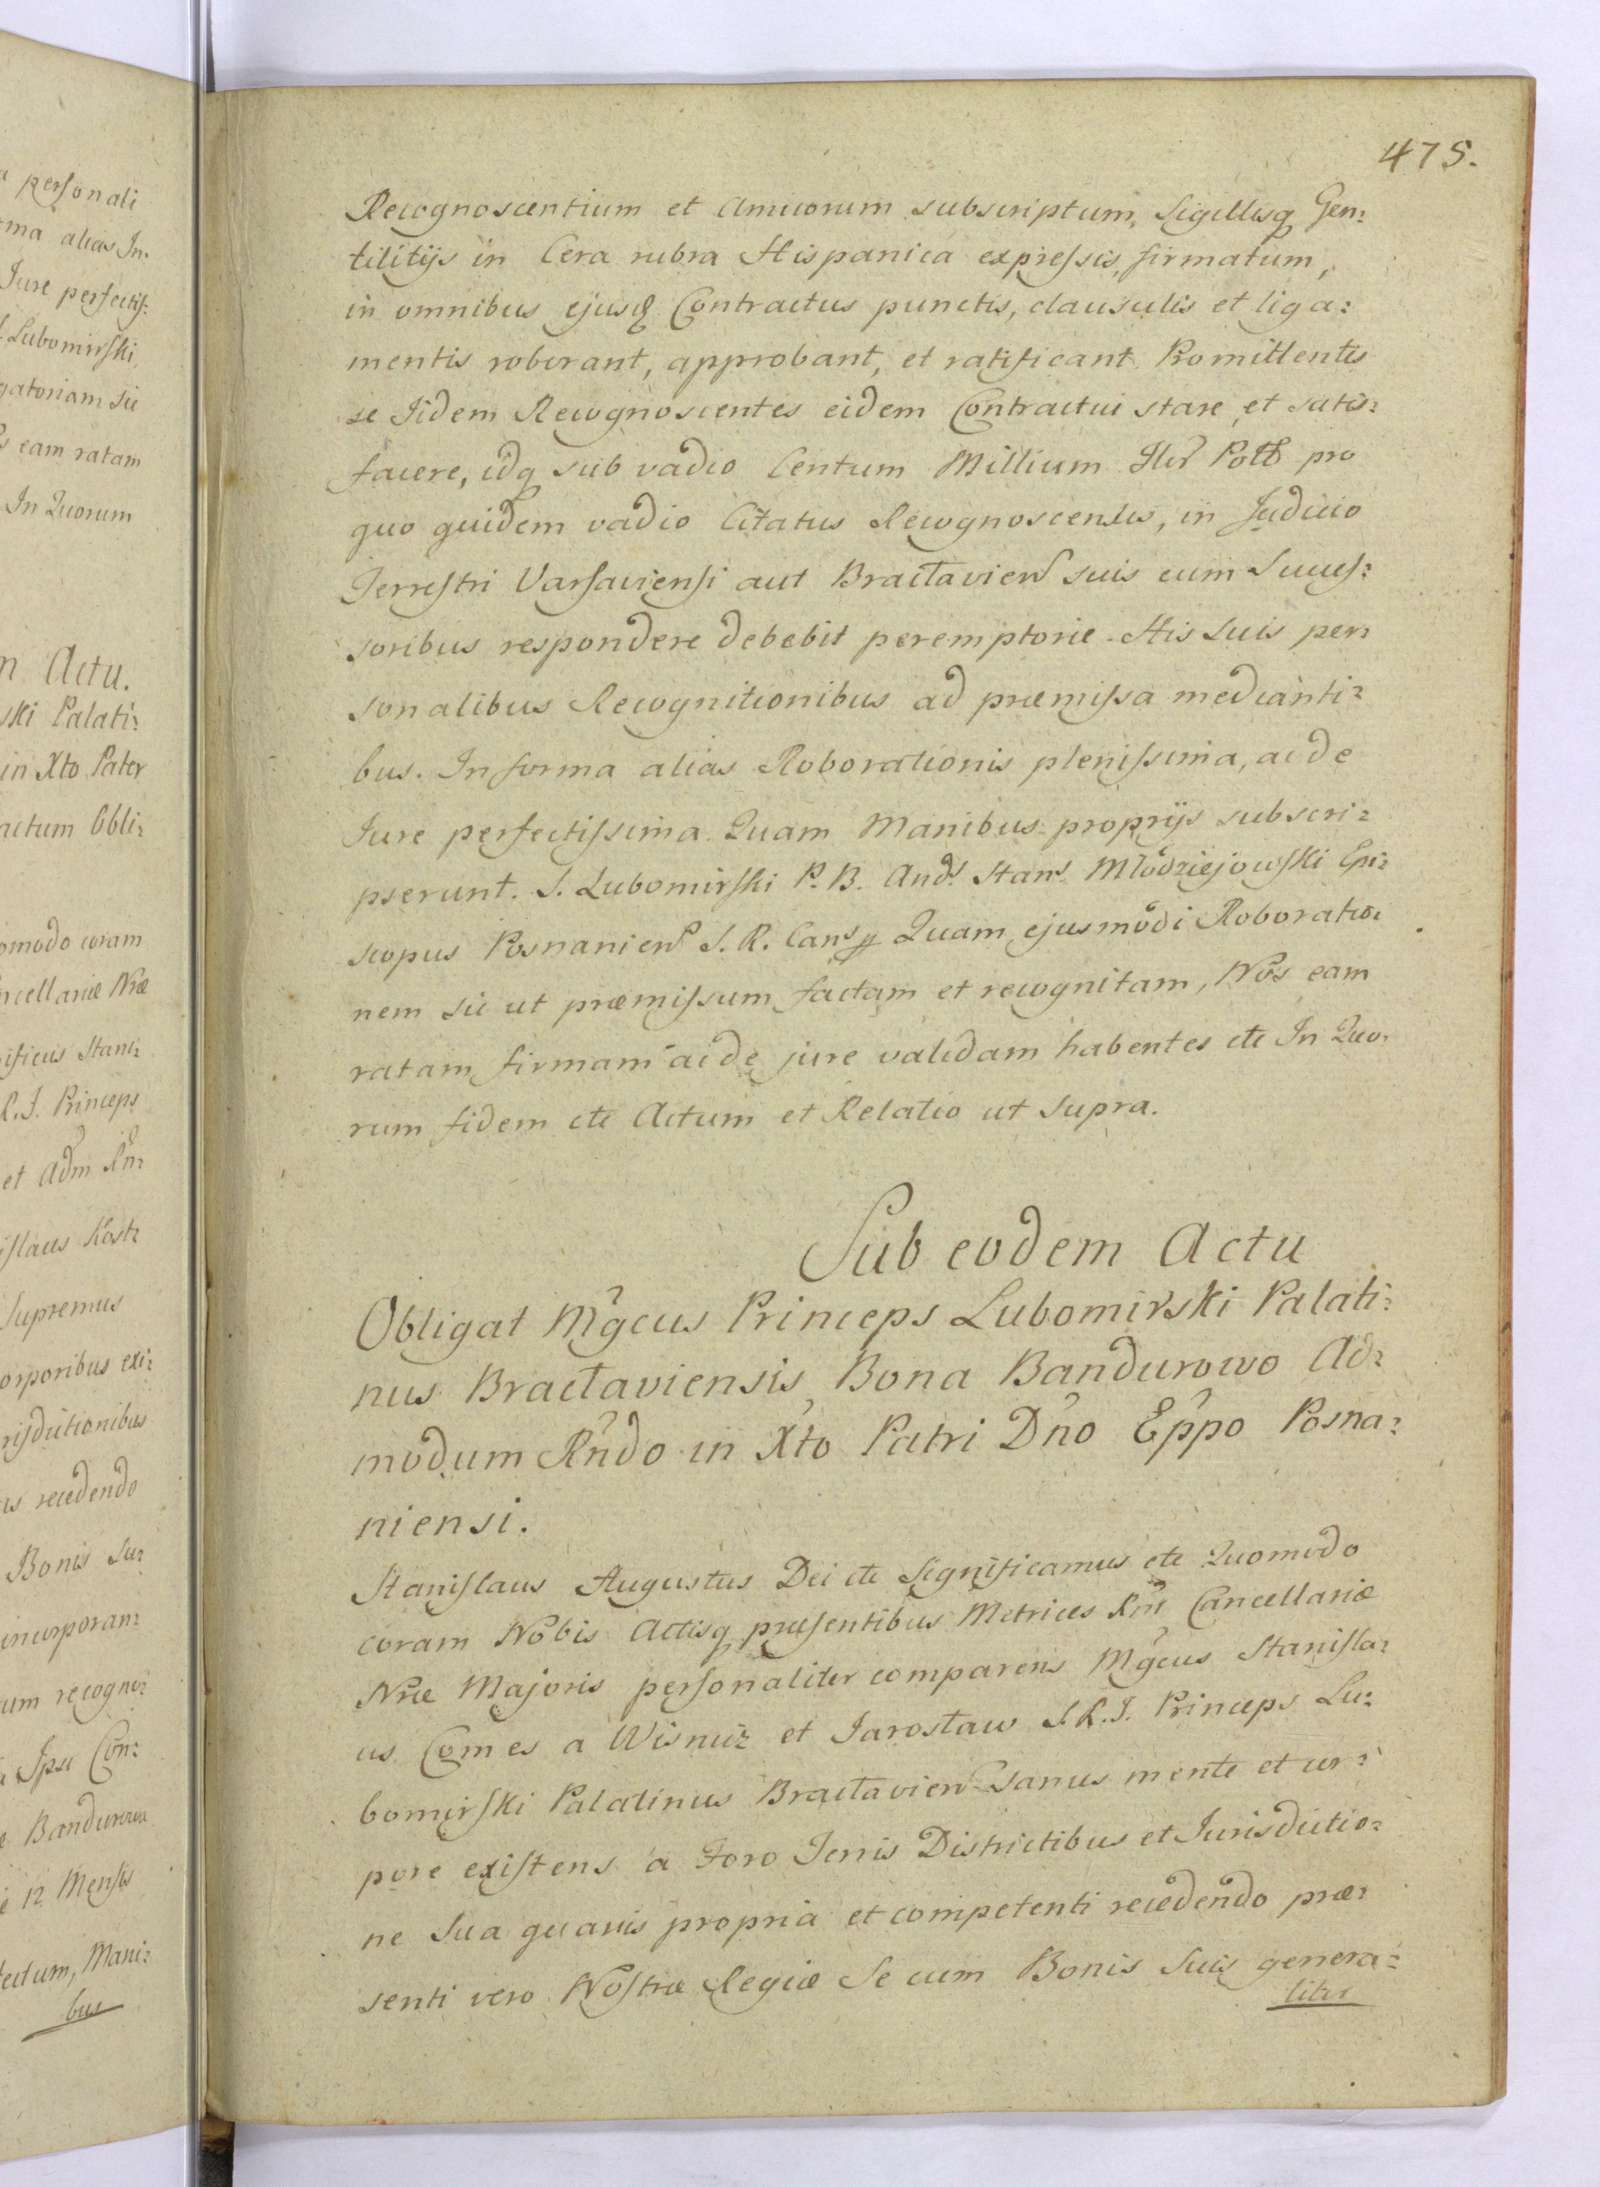 475.
Recognoscentium et Amicorum subscriptum, Sigillisq Gen:
tilitijs in Cera rubra Hispanica expressis, firmatum,
in omnibus ejusd Contractus punctis, clausulis et liga:
mentis roborant, approbant, et ratificant. Promittentes
se Iidem Recognoscentes eidem Contractui stare, et satis:
facere, idq sub vadio Centum Millium Flor Poll pro
quo quidem vadio Citatus Recognoscentes, in Judicio
Terrestri Varsaviensi aut Bractavien suis cum Succes:
soribus respondere debebit peremptorie. His suis per:
sonalibus Recognitionibus ad præmissa medianti:
bus. In forma alias Roborationis plenissima, ac de
Jure perfectissima. Quam Manibus proprijs subscri:
pserunt. S. Lubomirski P. B. And. Stan. Młodziejowski Epi:
scopus Posnanien S. R. Canc Quam ejusmodi Roboratio:
nem sic ut præmissum factam et recognitam, Nos eam
ratam firmam ac de jure validam habentes etc In Quo:
rum fidem etc Actum et Relatio ut supra.
Sub eodem Actu
Obligat Mgcus Princeps Lubomirski Palati:
nus Bractaviensis Bona Bandurowo Ad:
modum Rndo in Xto Patri Dno Eppo Posna:
niensi.
Stanislaus Augustus Dei etc Significamus etc Quomodo
coram Nobis Actisq præsentibus Metrices Rni Cancellariæ
Nræ Majoris personaliter comparens Mgcus Stanisla:
us Comes a Wisnicz et Jarosław S.R.I. Princeps Lu:
bomirski Palatinus Bractavien sanus mente et cor:
pore existens a Foro Terris Districtibus et Jurisdictio:
ne sua quavis propria et competenti recedendo præ:
senti vero Nostræ Regiæ Se cum Bonis suis genera:
liter